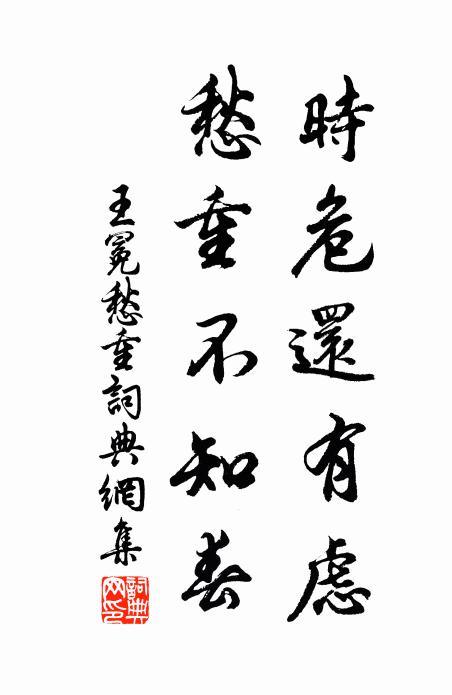 時危還有慮
愁重不知春
王冕愁重詞典網集
詞典網印